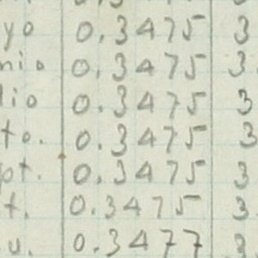 yo 0.3475 3
nio 0.3475 3.
lio 0.3475 3
to. 0.3475 3
pt. 0.3475 3
t. 0.3475 3.
u. 0.3477 3.